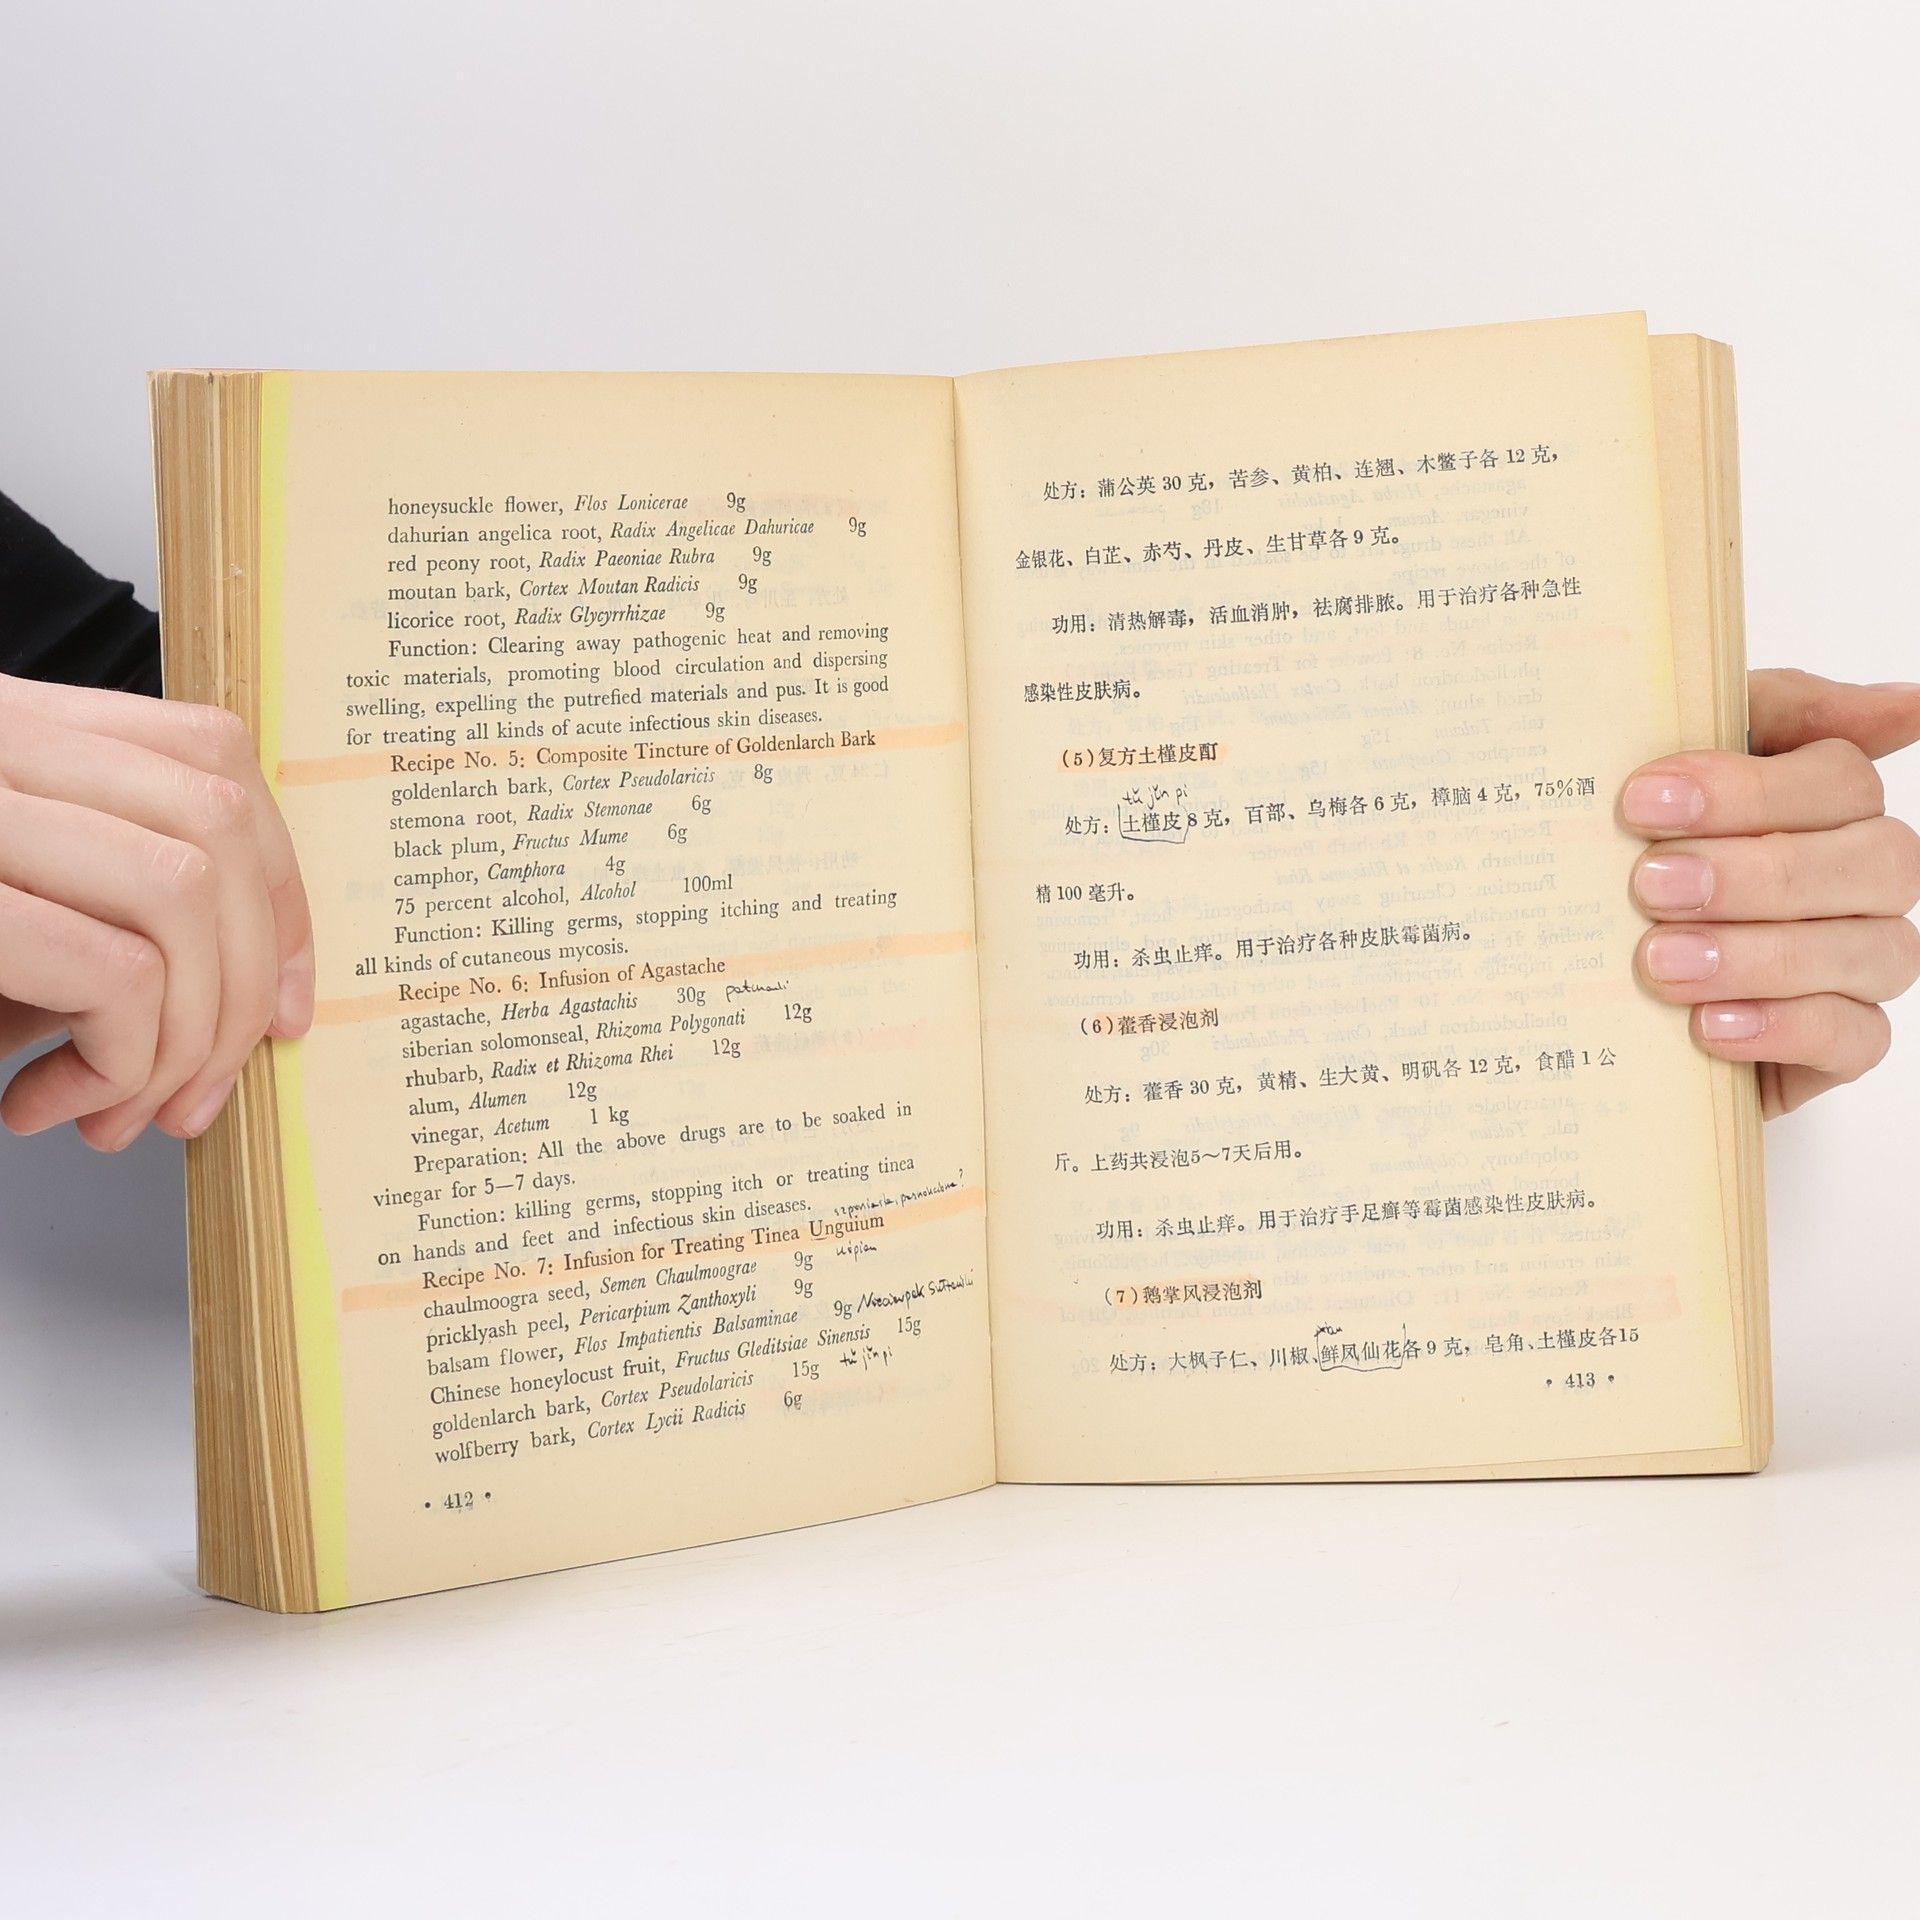 honeysuckle flower, Flos Lonicerae 9g
dahurian angelica root, Radix Angelicae Dahuricae 9g
red peony root, Radix Paeoniae Rubra 9g
moutan bark, Cortex Moutan Radicis 9g
licorice root, Radix Glycyrrhizae 9g
Function: Clearing away pathogenic heat and removing
toxic materials, promoting blood circulation and dispersing
swelling, expelling the putrefied materials and pus. It is good
for treating all kinds of acute infectious skin diseases.
Recipe No. 5: Composite Tincture of Goldenlarch Bark
goldenlarch bark, Cortex Pseudolaricis 8g
stemona root, Radix Stemonae 6g
black plum, Fructus Mume 6g
camphor, Camphora 4g
75 percent alcohol, Alcohol 100ml
Function: Killing germs, stopping itching and treating
all kinds of cutaneous mycosis.
Recipe No. 6: Infusion of Agastache
agastache, Herba Agastachis 30g
siberian solomonseal, Rhizoma Polygonati 12g
rhubarb, Radix et Rhizoma Rhei 12g
alum, Alumen 12g
vinegar, Acetum 1 kg
Preparation: All the above drugs are to be soaked in
vinegar for 5—7 days.
Function: killing germs, stopping itch or treating tinea
on hands and feet and infectious skin diseases.
Recipe No. 7: Infusion for Treating Tinea Unguium
chaulmoogra seed, Semen Chaulmoograe 9g
pricklyash peel, Pericarpium Zanthoxyli 9g
balsam flower, Flos Impatientis Balsaminae 9g
Chinese honeylocust fruit, Fructus Gleditsiae Sinensis 15g
goldenlarch bark, Cortex Pseudolaricis 15g tǔ jǐn pí
wolfberry bark, Cortex Lycii Radicis 6g
• 412 •
处方：蒲公英 30 克，苦参、黄柏、连翘、木鳖子各 12 克，
金银花、白芷、赤芍、丹皮、生甘草各 9 克。
功用：清热解毒，活血消肿，祛腐排脓。用于治疗各种急性
感染性皮肤病。
(5)复方土槿皮酊
tǔ jǐn pí
处方：土槿皮 8 克，百部、乌梅各 6 克，樟脑 4 克，75％酒
精 100 毫升。
功用：杀虫止痒。用于治疗各种皮肤霉菌病。
(6)藿香浸泡剂
处方：藿香 30 克，黄精、生大黄、明矾各 12 克，食醋 1 公
斤。上药共浸泡5～7天后用。
功用：杀虫止痒。用于治疗手足癣等霉菌感染性皮肤病。
(7)鹅掌风浸泡剂
处方：大枫子仁、川椒、鲜凤仙花各 9 克，皂角、土槿皮各15
• 413 •